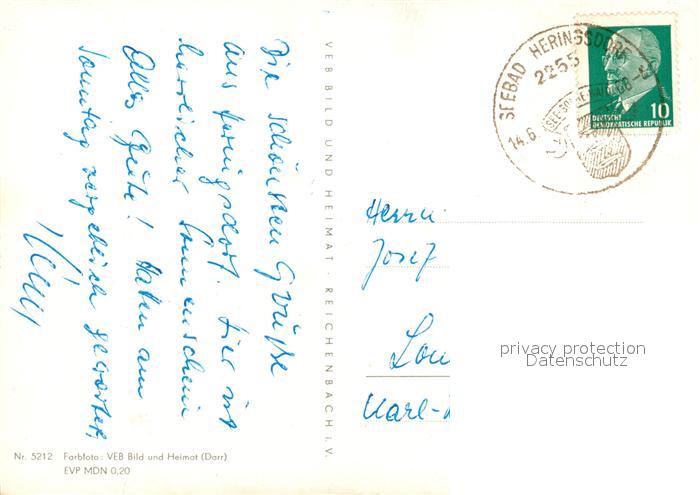 Die schönsten Grüße
aus Heringsdorf. Hier ist
herrlicher Sonnenschein
Alles Gute! Haben am
Sonntag vergeblich gewartet.
VEB BILD UND HEIMAT · REICHENBACH I. V.
SEEBAD HERINGSDORF
2255
14.6
10
DEUTSCHE
DEMOKRATISCHE REPUBLIK
Herrn
Josef
Lou
Karl-
privacy protection
Datenschutz
Nr. 5212 Farbfoto: VEB Bild und Heimat (Darr)
EVP MDN 0,20